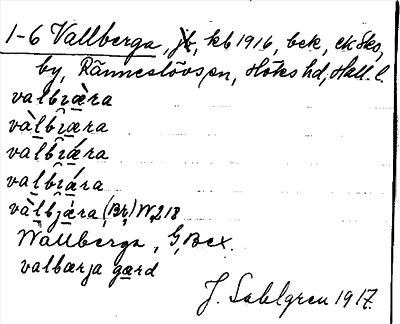 1-6 Vallberga, jb, kb 1916, bek, ek sko,
by, Ränneslövs sn, Höks hd, Hall. l.
valbıæ̀ra
và̲lbı̲æra
va̲lbı̲ǽra
va̲lbı̲ára
và̲lbjæ̀ra (Br) W, 218
Wallberga, G, Bex.
valbærja gærd
J. Sahlgren 1917.